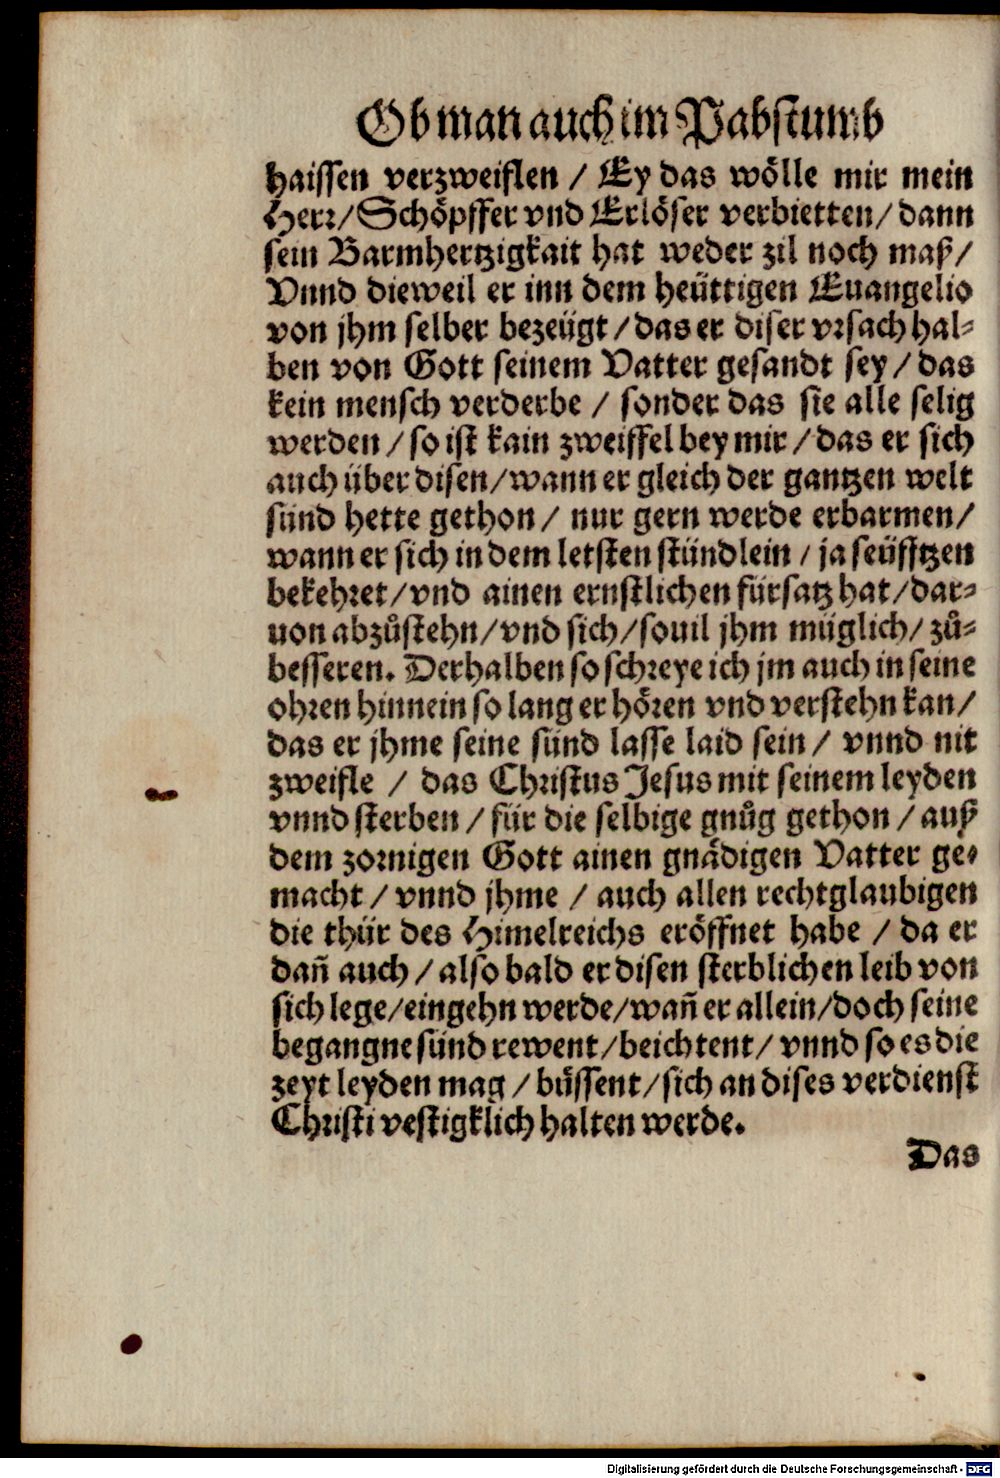 Ob man auch im Pabstumb
haissen verzweiflen / Ey das wölle mir mein
Herr/Schöpffer vnd Erlöser verbietten/ dann
sein Barmhertzigkait hat weder zil noch maß/
Vnnd dieweil er inn dem heüttigen Euangelio
von jhm selber bezeügt / das er diser vrsach hal⸗
ben von Gott seinem Vatter gesandt sey / das
kein mensch verderbe / sonder das sie alle selig
werden / so ist kain zweiffel bey mir / das er sich
auch über disen/wann er gleich der gantzen welt
sünd hette gethon / nur gern werde erbarmen/
wann er sich in dem letsten stündlein / ja seüfftzen
bekehret/vnd ainen ernstlichen fürsatz hat/dar⸗
uon abzůstehn/vnd sich/souil jhm müglich/ zů⸗
besseren. Derhalben so schreye ich jm auch in seine
ohren hinnein so lang er hören vnd verstehn kan/
das er jhme seine sünd lasse laid sein / vnnd nit
zweifle / das Christus Jesus mit seinem leyden
vnnd sterben / für die selbige gnůg gethon / auß
dem zornigen Gott ainen gnädigen Vatter ge⸗
macht / vnnd jhme / auch allen rechtglaubigen
die thür des Himelreichs eröffnet habe / da er
dañ auch / also bald er disen sterblichen leib von
sich lege/eingehn werde/wañ er allein/doch seine
begangne sünd rewent/beichtent/ vnnd so es die
zeyt leyden mag / büssent/sich an dises verdienst
Christi vestigklich halten werde.
Das
Digitalisierung gefördert durch die Deutsche Forschungsgemeinschaft - DFG